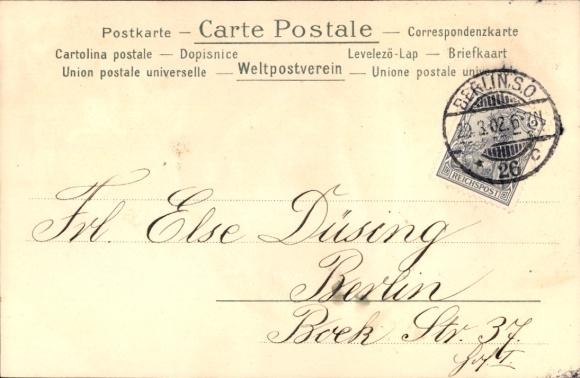 Postkarte — Carte Postale — Correspondenzkarte
Cartolina postale — Dopisnice Levelező-Lap — Briefkaart
Union postale universelle — Weltpostverein — Unione postale
BERLIN.S.O.
3.02.
* 26 c
REICHSPOST
Frl. Else Düsing
Berlin
Bock Str. 37.
Hof I.